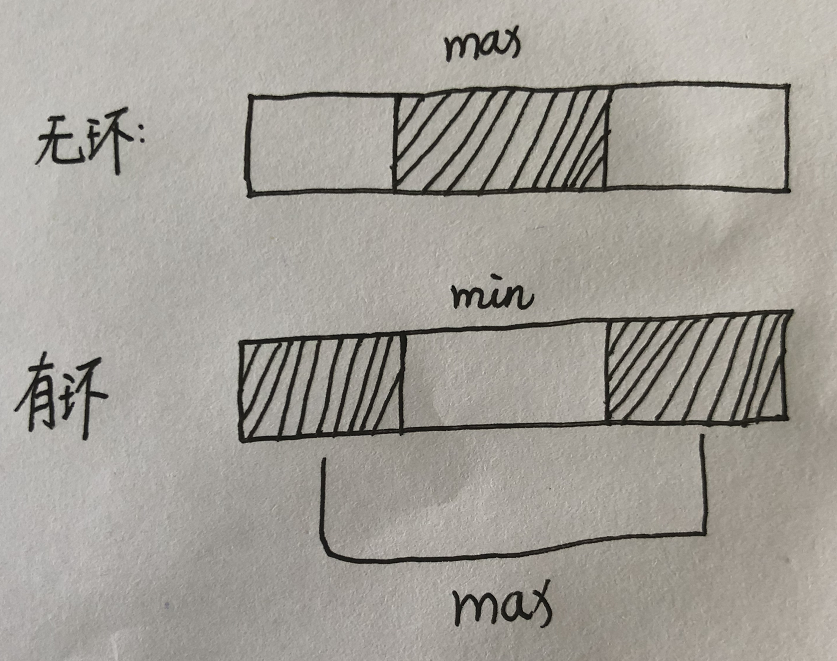 max
无环:
min
有环
max